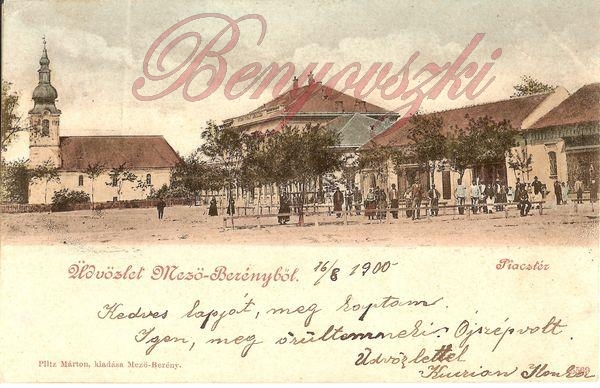 Benyovszki
Üdvözlet Mező-Berényből. 16/8 1900 Piacztér
Kedves lapját, meg koptam.
Igen, meg örültem neki. Ojszép volt.
Üdvözlettel
Plitz Márton, kiadása Mező-Berény.